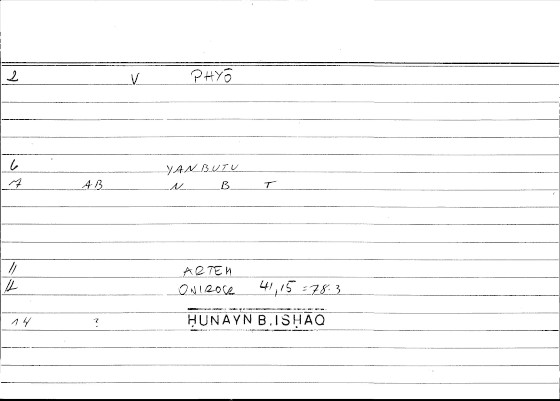 2 V PHYŌ
6 YANBUTU
7 AB N B T
11 ARTEM
12 ONIROCR 41,15 = 78.3
14 ? ḤUNAYN B. ISḤĀQ